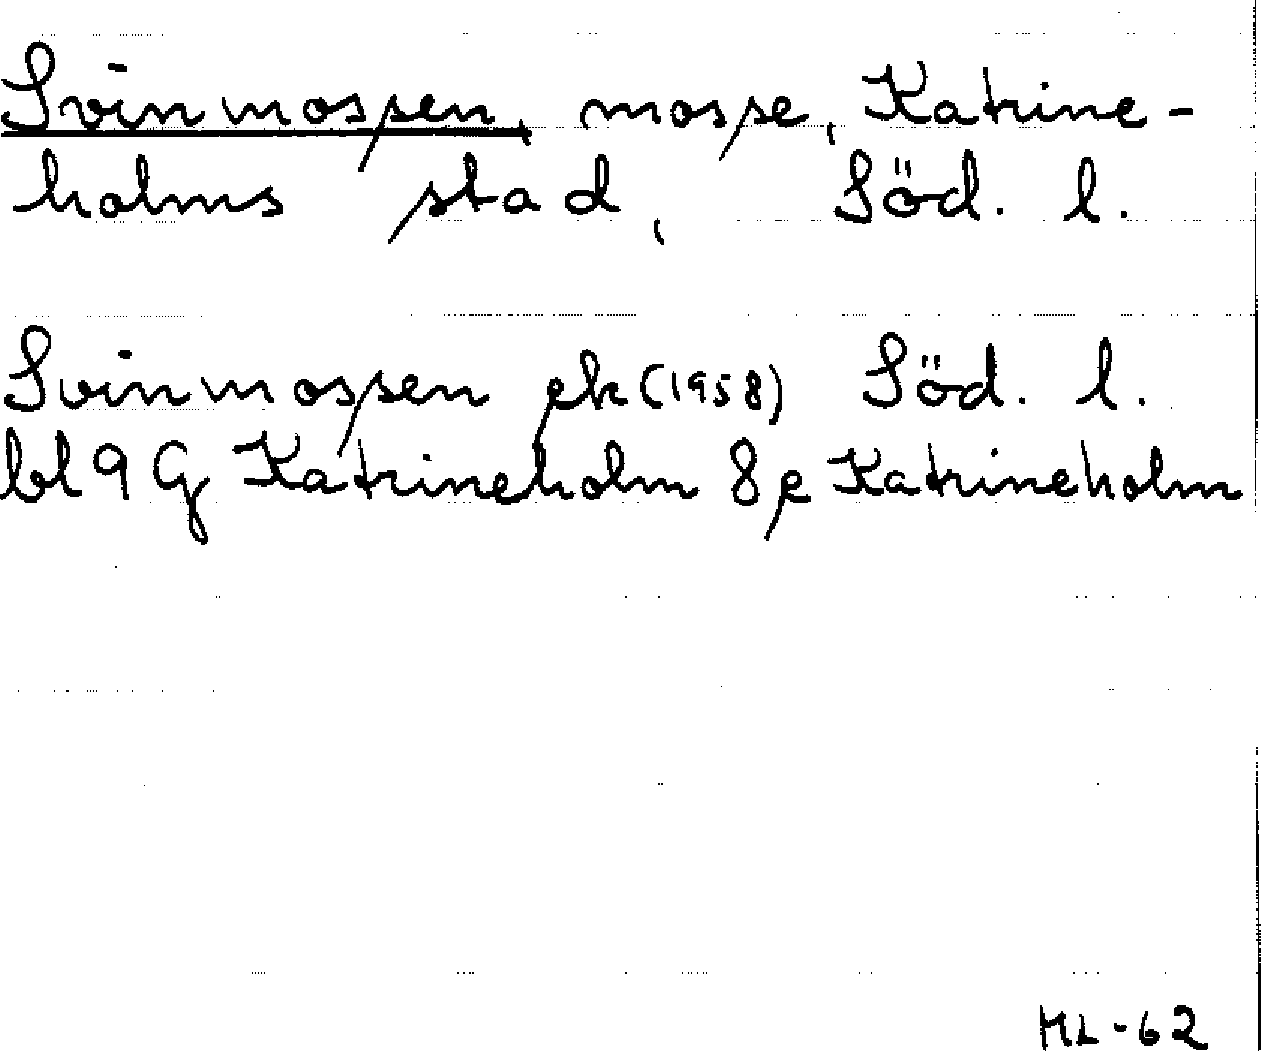 Svinmossen, mosse, Katrine-
holms stad, Söd. l.
Svinmossen ek (1958) Söd. l.
bl 9 G Katrineholm 8 e Katrineholm
ML-62